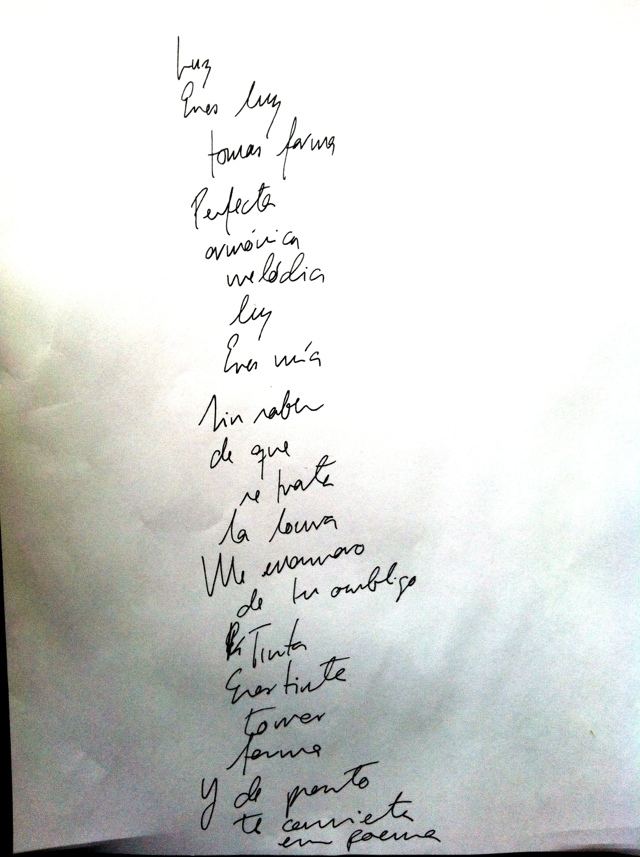 Luz
Eres luz
tomas forma
Perfecta
armónica
melódica
luz
Eres mía
Sin saber
de que
se trata
la locura
Me enamoro
de tu ombligo
Tinta
Eres tinta
tomas
forma
Y de pronto
te
en poema